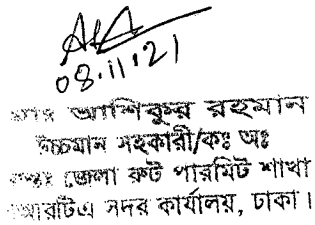 08.11.21
মোঃ আশিকুর রহমান
উচ্চমান সহকারী/কঃ অঃ
জেলা রুট পারমিট শাখা
বিআরটিএ সদর কার্যালয়, ঢাকা।